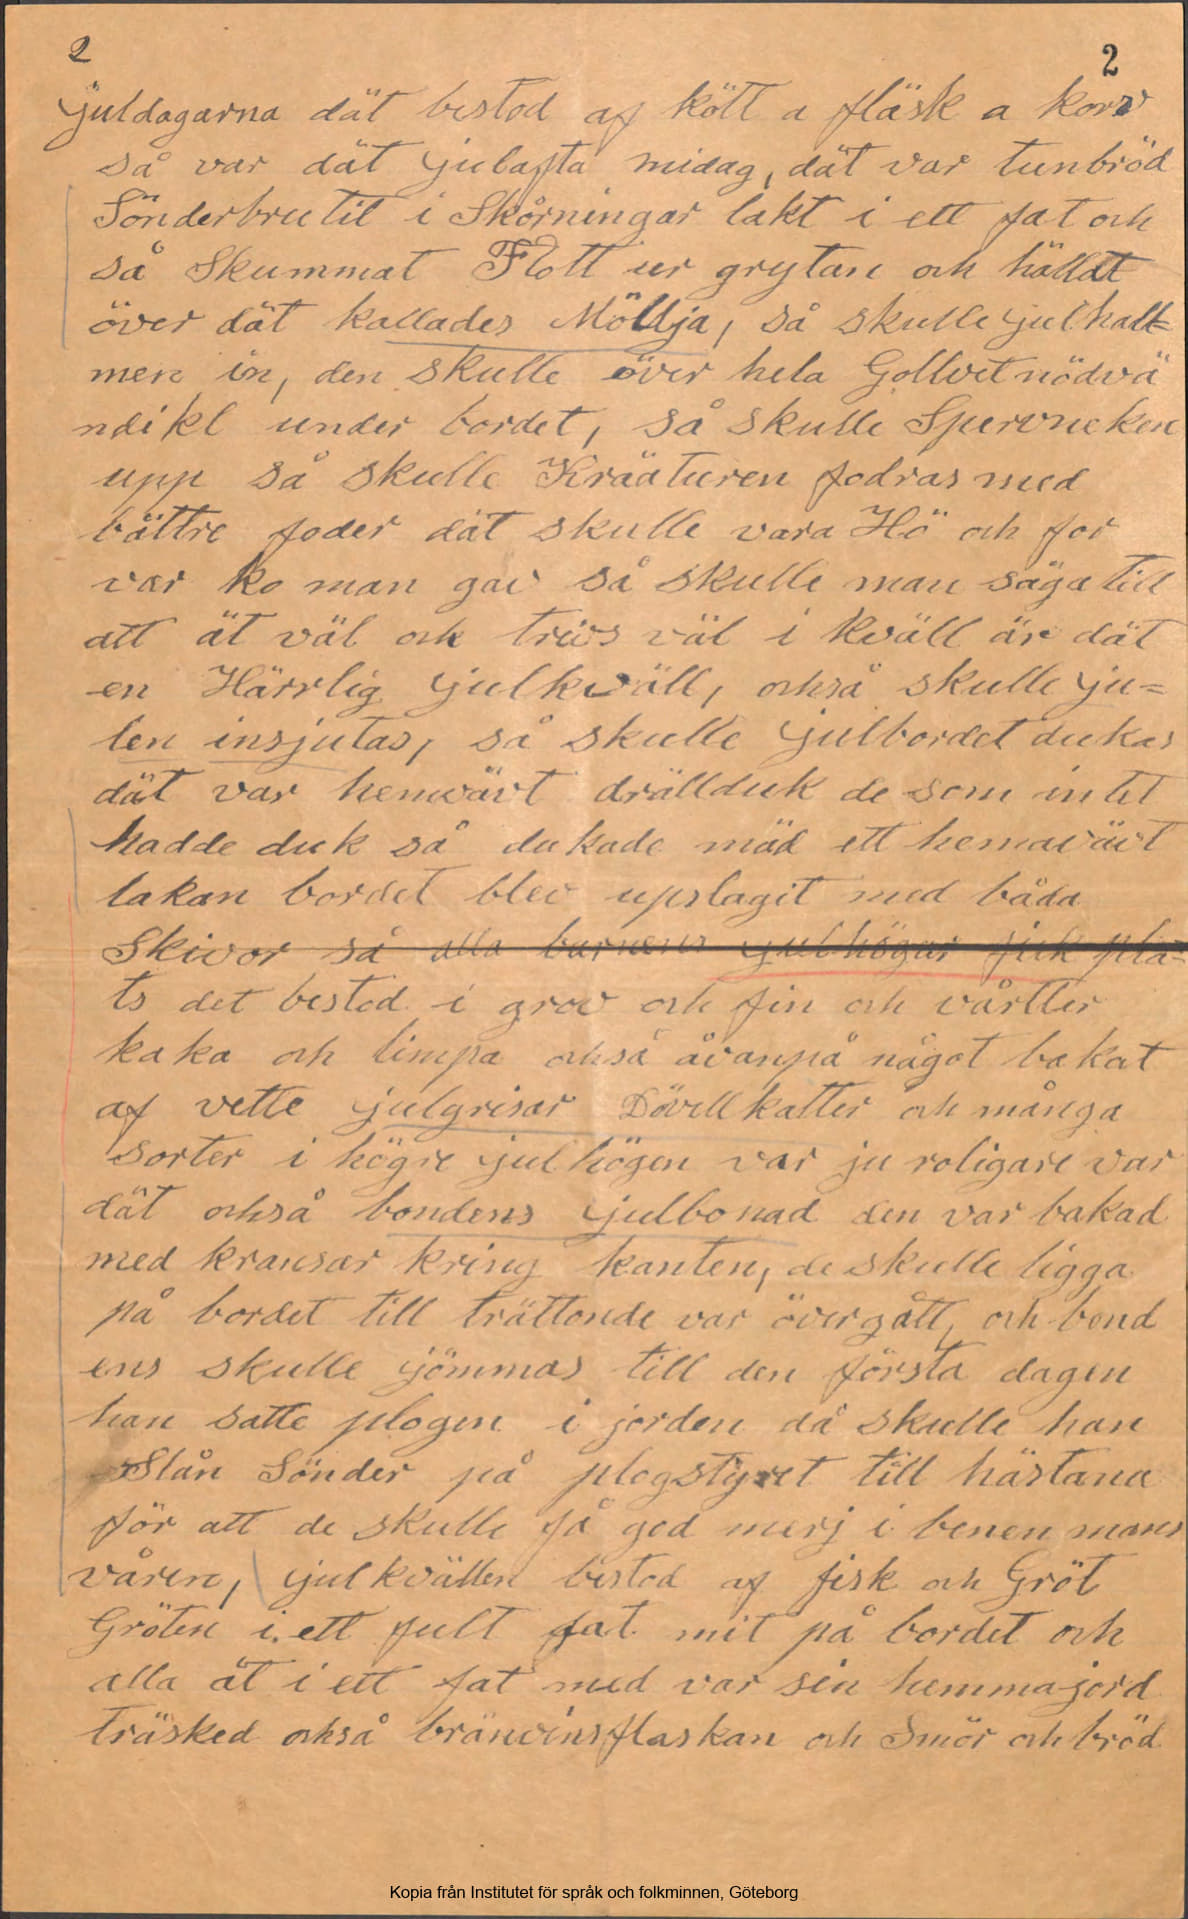 2 2
juldagarna dät bestod af kött a fläsk a korv
så var dät julafta midag, dät var tunbröd
Sönderbrutit i Skårningar lakt i ett fat och
så Skummat Flott ur grytan och hällat
över dät kallades Möllja, så skulle julhall=
men in, den skulle över hela Gollvet nödvä
ndikl under bordet, så skulle Spervneken
upp så skulle Kräaturen fodras med
bättre foder dät skulle vara Hö och for
var ko man gav så skulle man säga till
att ät väl och trivs väl i kväll är dät
en Härrlig julkväll, också skulle ju=
len insjutas, så skulle julbordet dukas
dät var hemvävt drällduk de som intet
hadde duk så dukade mäd ett hemavävt
lakan bordet blev upslagit med båda
Skivor så alla barnens julhögar fick pla=
ts det bestod i grov och fin och vårtter
kaka och limpa också åvanpå något bakat
af vette julgrisar Dövellkatter och många
sorter i högre julhögen var ju roligare var
dät också bondens julbonad den var bakad
med kransar kring kanten, de skulle ligga
på bordet till trättonde var övergått, och bond
ens skulle jömmas till den första dagen
han satte plogen i jorden då skulle han
Slån Sönder på plogstyret till hästana
för att de skulle få god merj i benen mans
våren, julkvällen bestod af fisk och Gröt
Gröten i ett fult fat mit på bordet och
alla åt i ett fat med var sin hemmajord
träsked också bränvinsflaskan och Smör och bröd
Kopia från Institutet för språk och folkminnen, Göteborg